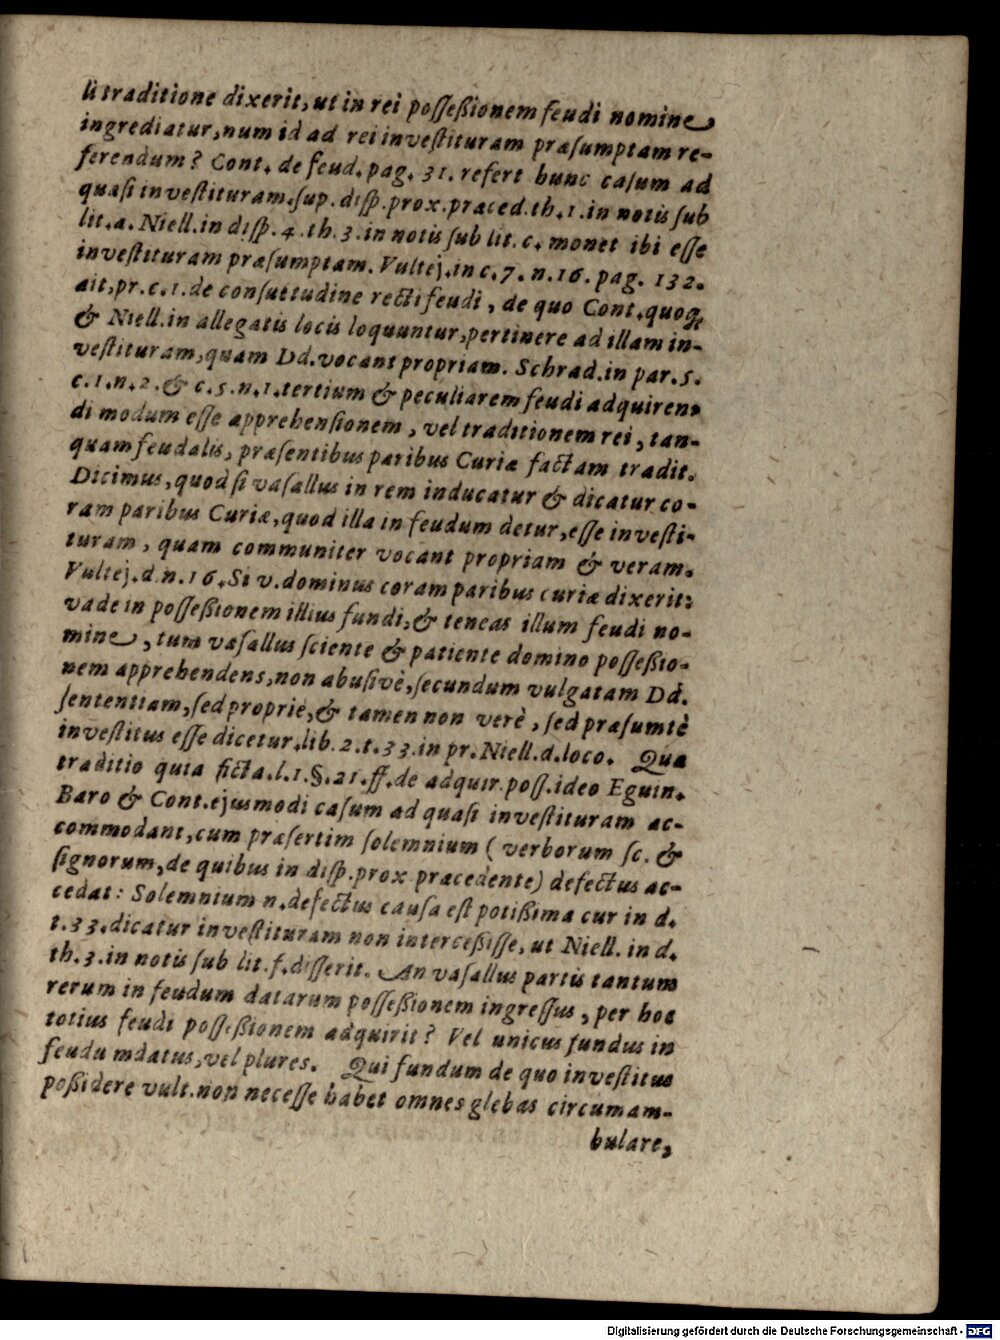 li traditione dixerit, ut in rei possessionem feudi nomine
ingrediatur, num id ad rei investituram præsumptam re-
ferendum? Cont. de feud. pag. 31. refert hunc casum ad
quasi investituram. sup. disp. prox. præced. th. 1. in notis sub
lit. a. Niell. in disp. 4. th. 3. in notis sub lit. c. monet ibi esse
investituram præsumptam. Vultej. in c. 7. n. 16. pag. 132.
ait, pr. c. 1. de consuetudine recti feudi, de quo Cont. quoq;
& Niell. in allegatis locis loquuntur, pertinere ad illam in-
vestituram, quam Dd. vocant propriam. Schrad. in par. 5.
c. 1. n. 2. & c. 5. n. 1. tertium & peculiarem feudi adquiren-
di modum esse apprehensionem, vel traditionem rei, tan-
quam feudalis, præsentibus paribus Curiæ factam tradit.
Dicimus, quod si vasallus in rem inducatur & dicatur co-
ram paribus Curiæ, quod illa in feudum detur, esse investi-
turam, quam communiter vocant propriam & veram.
Vultej. d. n. 16. Si v. dominus coram paribus curiæ dixerit:
vade in possessionem illius fundi, & teneas illum feudi no-
mine, tum vasallus sciente & patiente domino possessio-
nem apprehendens, non abusivè, secundum vulgatam Dd.
sententiam, sed propriè, & tamen non verè, sed præsumtè
investitus esse dicetur. lib. 2. t. 33. in pr. Niell. d. loco. Qua
traditio quia ficta. l. 1. §. 21. ff. de adquir. poss. ideo Eguin.
Baro & Cont. ejusmodi casum ad quasi investituram ac-
commodant, cum præsertim solemnium (verborum sc. &
signorum, de quibus in disp. prox præcedente) defectus ac-
cedat: Solemnium n. defectus causa est potissima cur in d.
t. 33. dicatur investituram non intercessisse, ut Niell. in d.
th. 3. in notis sub lit. f. disserit. An vasallus partis tantum
rerum in feudum datarum possessionem ingressus, per hoc
totius feudi possessionem adquirit? Vel unicus fundus in
feudu mdatus, vel plures. Qui fundum de quo investitus
possidere vult. non necesse habet omnes glebas circumam-
bulare,
Digitalisierung gefördert durch die Deutsche Forschungsgemeinschaft - DFG